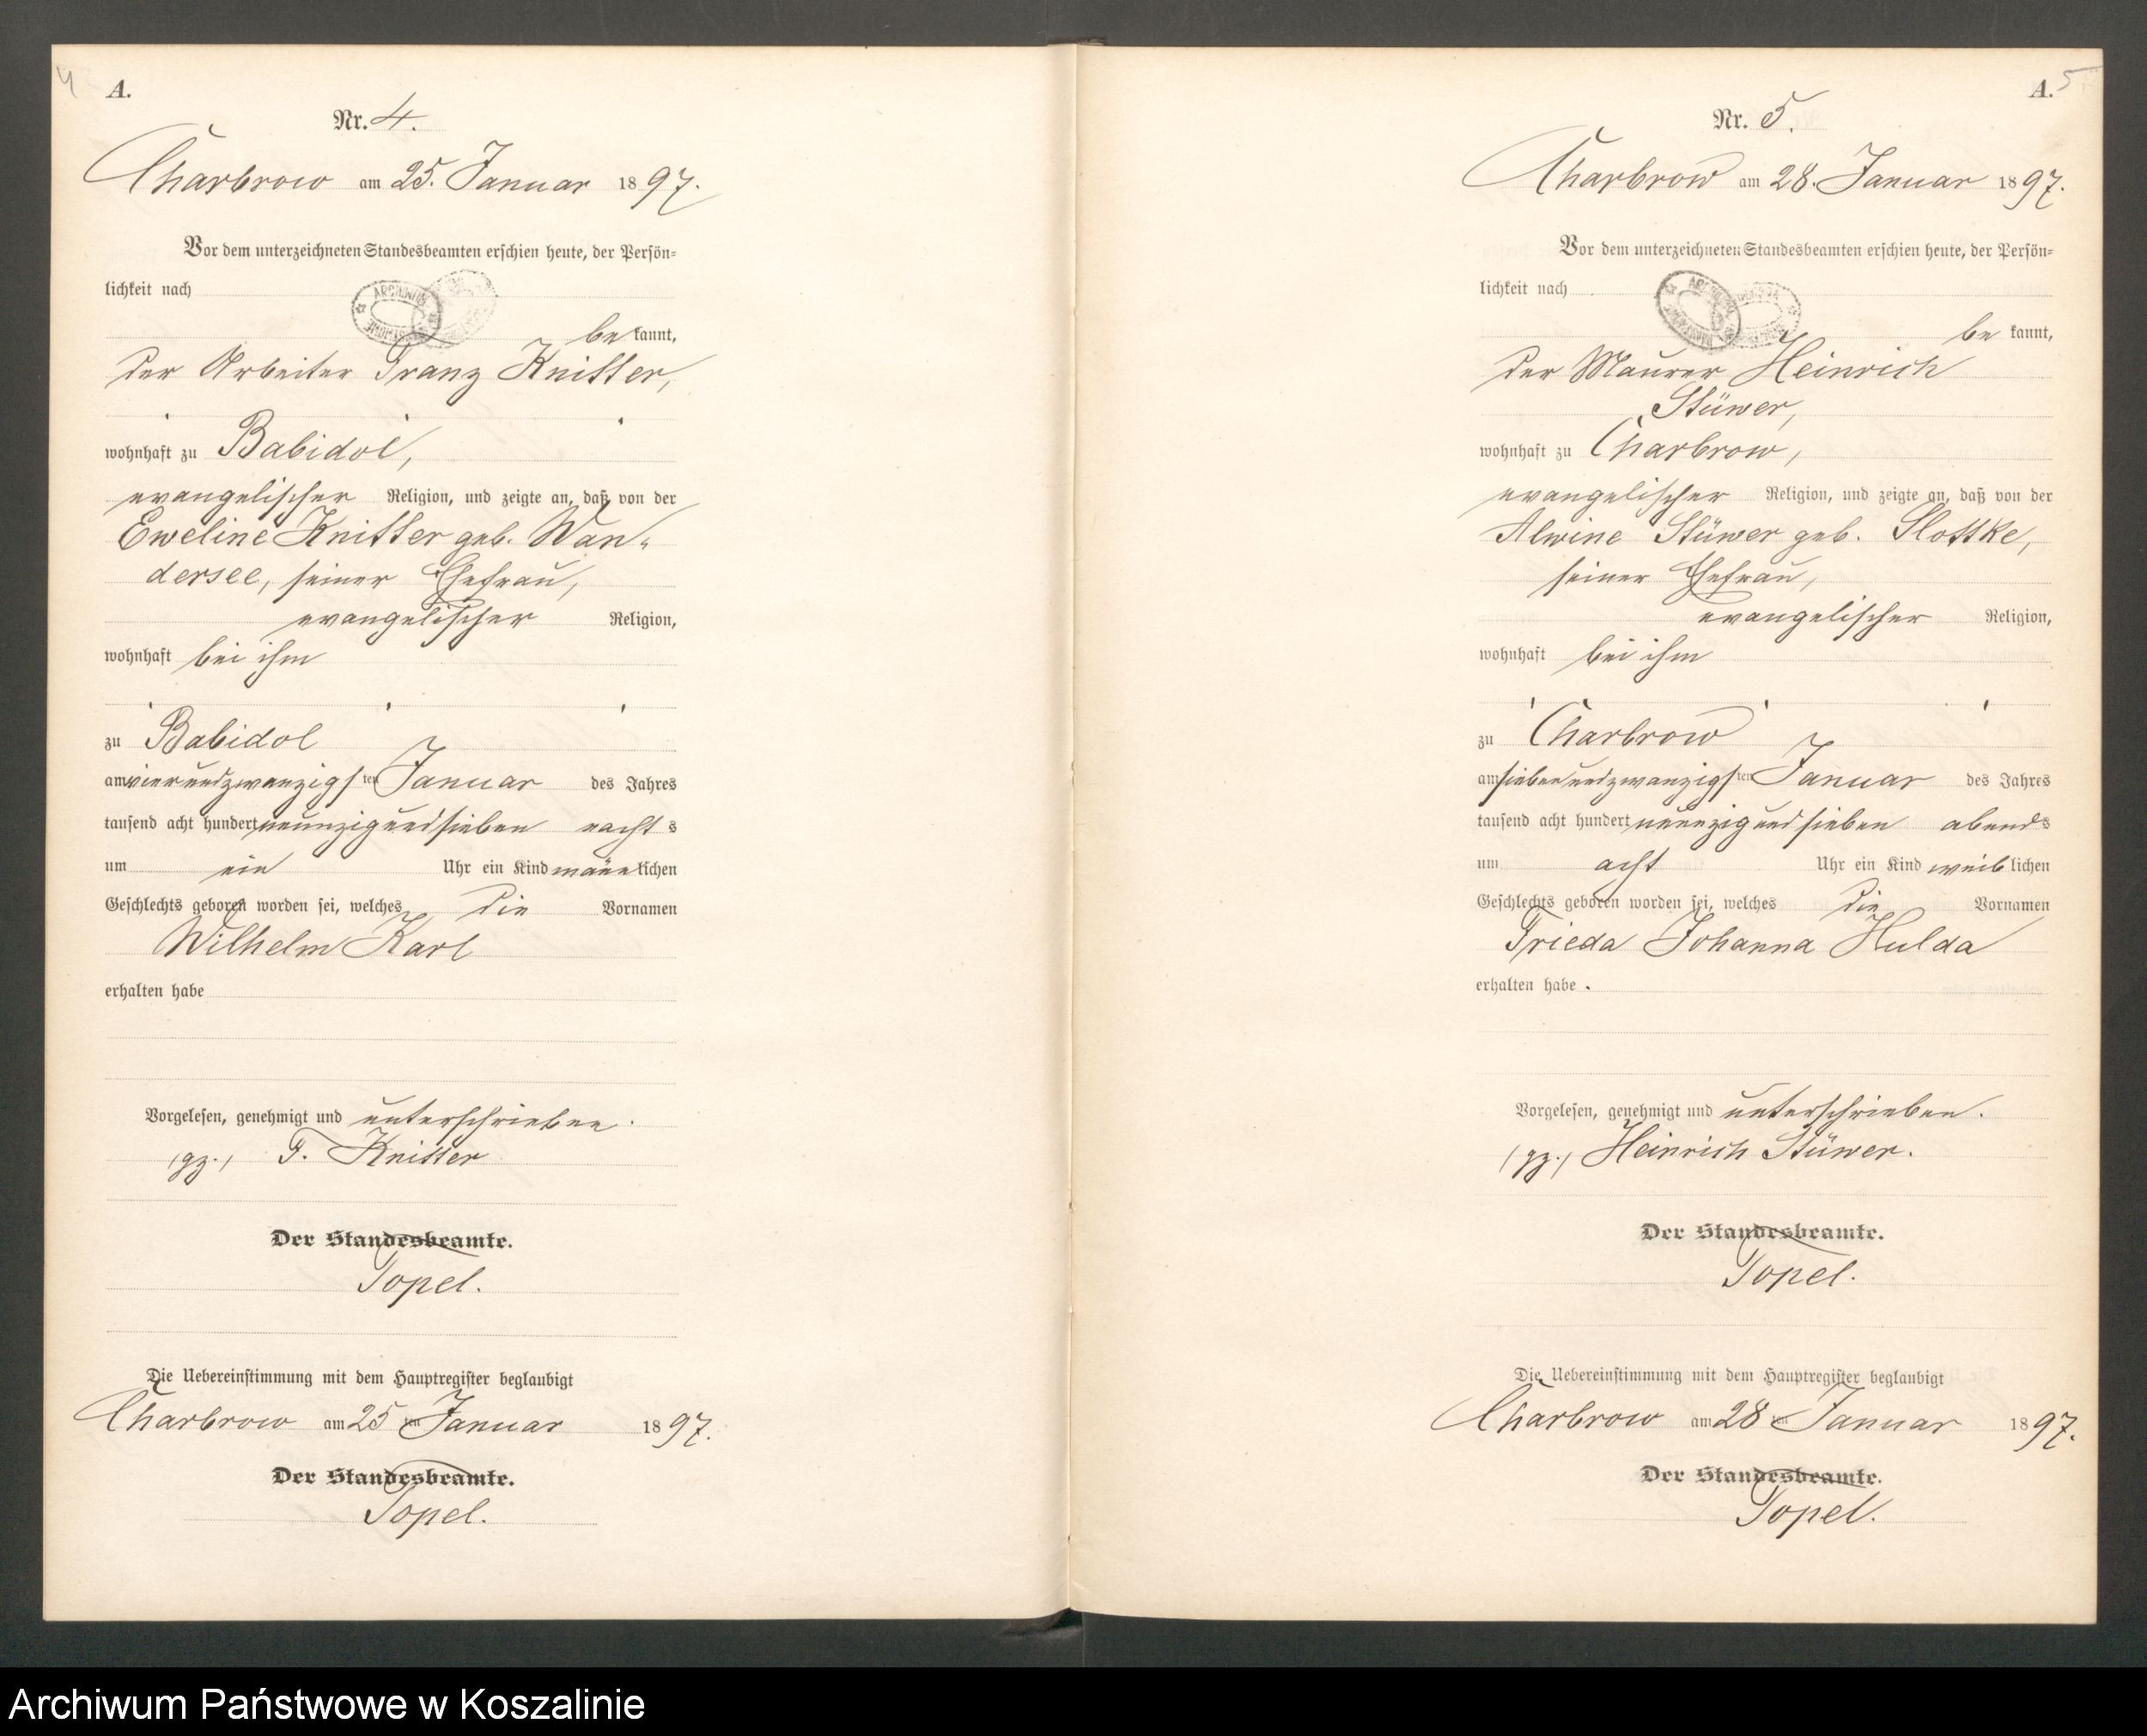 4
A.
Nr. 4.
Charbrow am 25. Januar 1897.
Vor dem unterzeichneten Standesbeamten erschien heute, der Persön-
lichkeit nach
bekannt,
der Arbeiter Franz Knitter,
wohnhaft zu Babidol,
evangelischer Religion, und zeigte an, daß von der
Eweline Knitter geb. Wan-
dersee, seiner Ehefrau,
evangelischer Religion,
wohnhaft bei ihm
zu Babidol
am vierundzwanzigsten Januar des Jahres
tausend acht hundert neunzig und sieben nachts
um ein Uhr ein Kind männlichen
Geschlechts geboren worden sei, welches die Vornamen
Wilhelm Karl
erhalten habe
Vorgelesen, genehmigt und unterschrieben.
(gz.) F. Knitter
Der Standesbeamte.
Topel.
Die Uebereinstimmung mit dem Hauptregister beglaubigt
Charbrow am 25 ten Januar 1897.
Der Standesbeamte.
Topel.
A. 5
Nr. 5.
Charbrow am 28. Januar 1897.
Vor dem unterzeichneten Standesbeamten erschien heute, der Persön-
lichkeit nach
bekannt,
der Maurer Heinrich
Stüwer,
wohnhaft zu Charbrow,
evangelischer Religion, und zeigte an, daß von der
Alwine Stüwer geb. Slottke,
seiner Ehefrau,
evangelischer Religion,
wohnhaft bei ihm
zu Charbrow
am siebenundzwanzigsten Januar des Jahres
tausend acht hundert neunzig und sieben abends
um acht Uhr ein Kind weiblichen
Geschlechts geboren worden sei, welches die Vornamen
Frieda Johanna Hulda
erhalten habe.
Vorgelesen, genehmigt und unterschrieben.
(gz.) Heinrich Stüwer.
Der Standesbeamte.
Topel.
Die Uebereinstimmung mit dem Hauptregister beglaubigt
Charbrow am 28 ten Januar 1897.
Der Standesbeamte.
Topel.
Archiwum Państwowe w Koszalinie